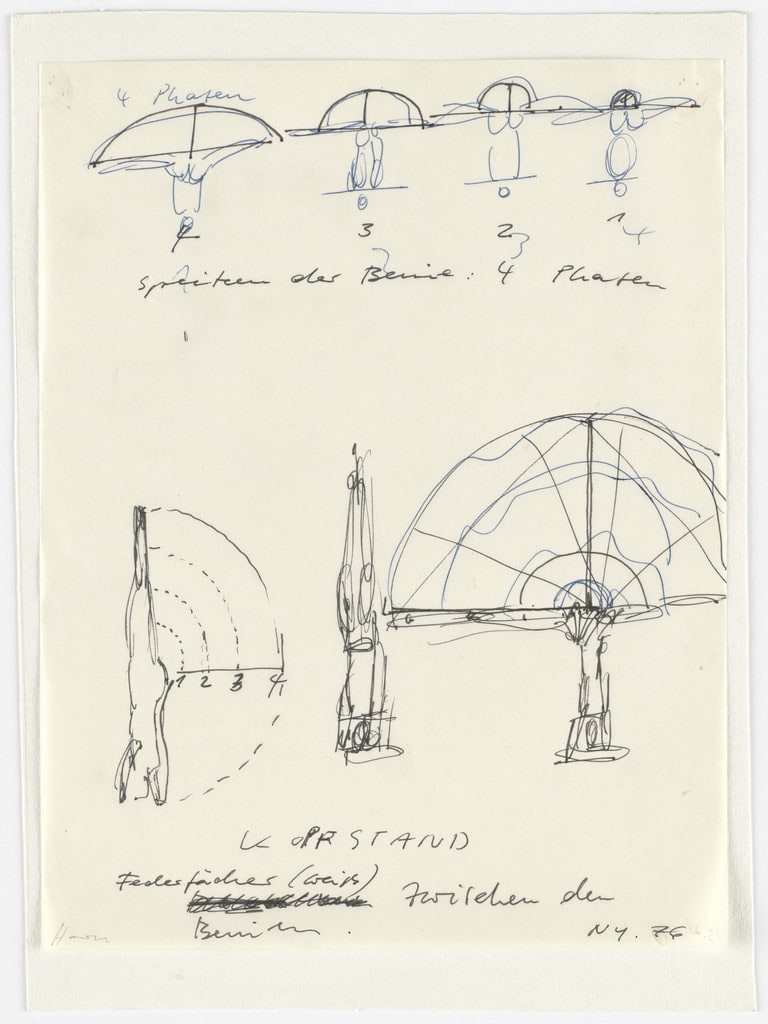 4 Phasen
4 3 2 3 1 4
spreitzen der Beine: 4 Phasen
1 2 3 4
KOPFSTAND
Federfächer (weiß)
zwischen den
Beinen.
NY. 76
Horn